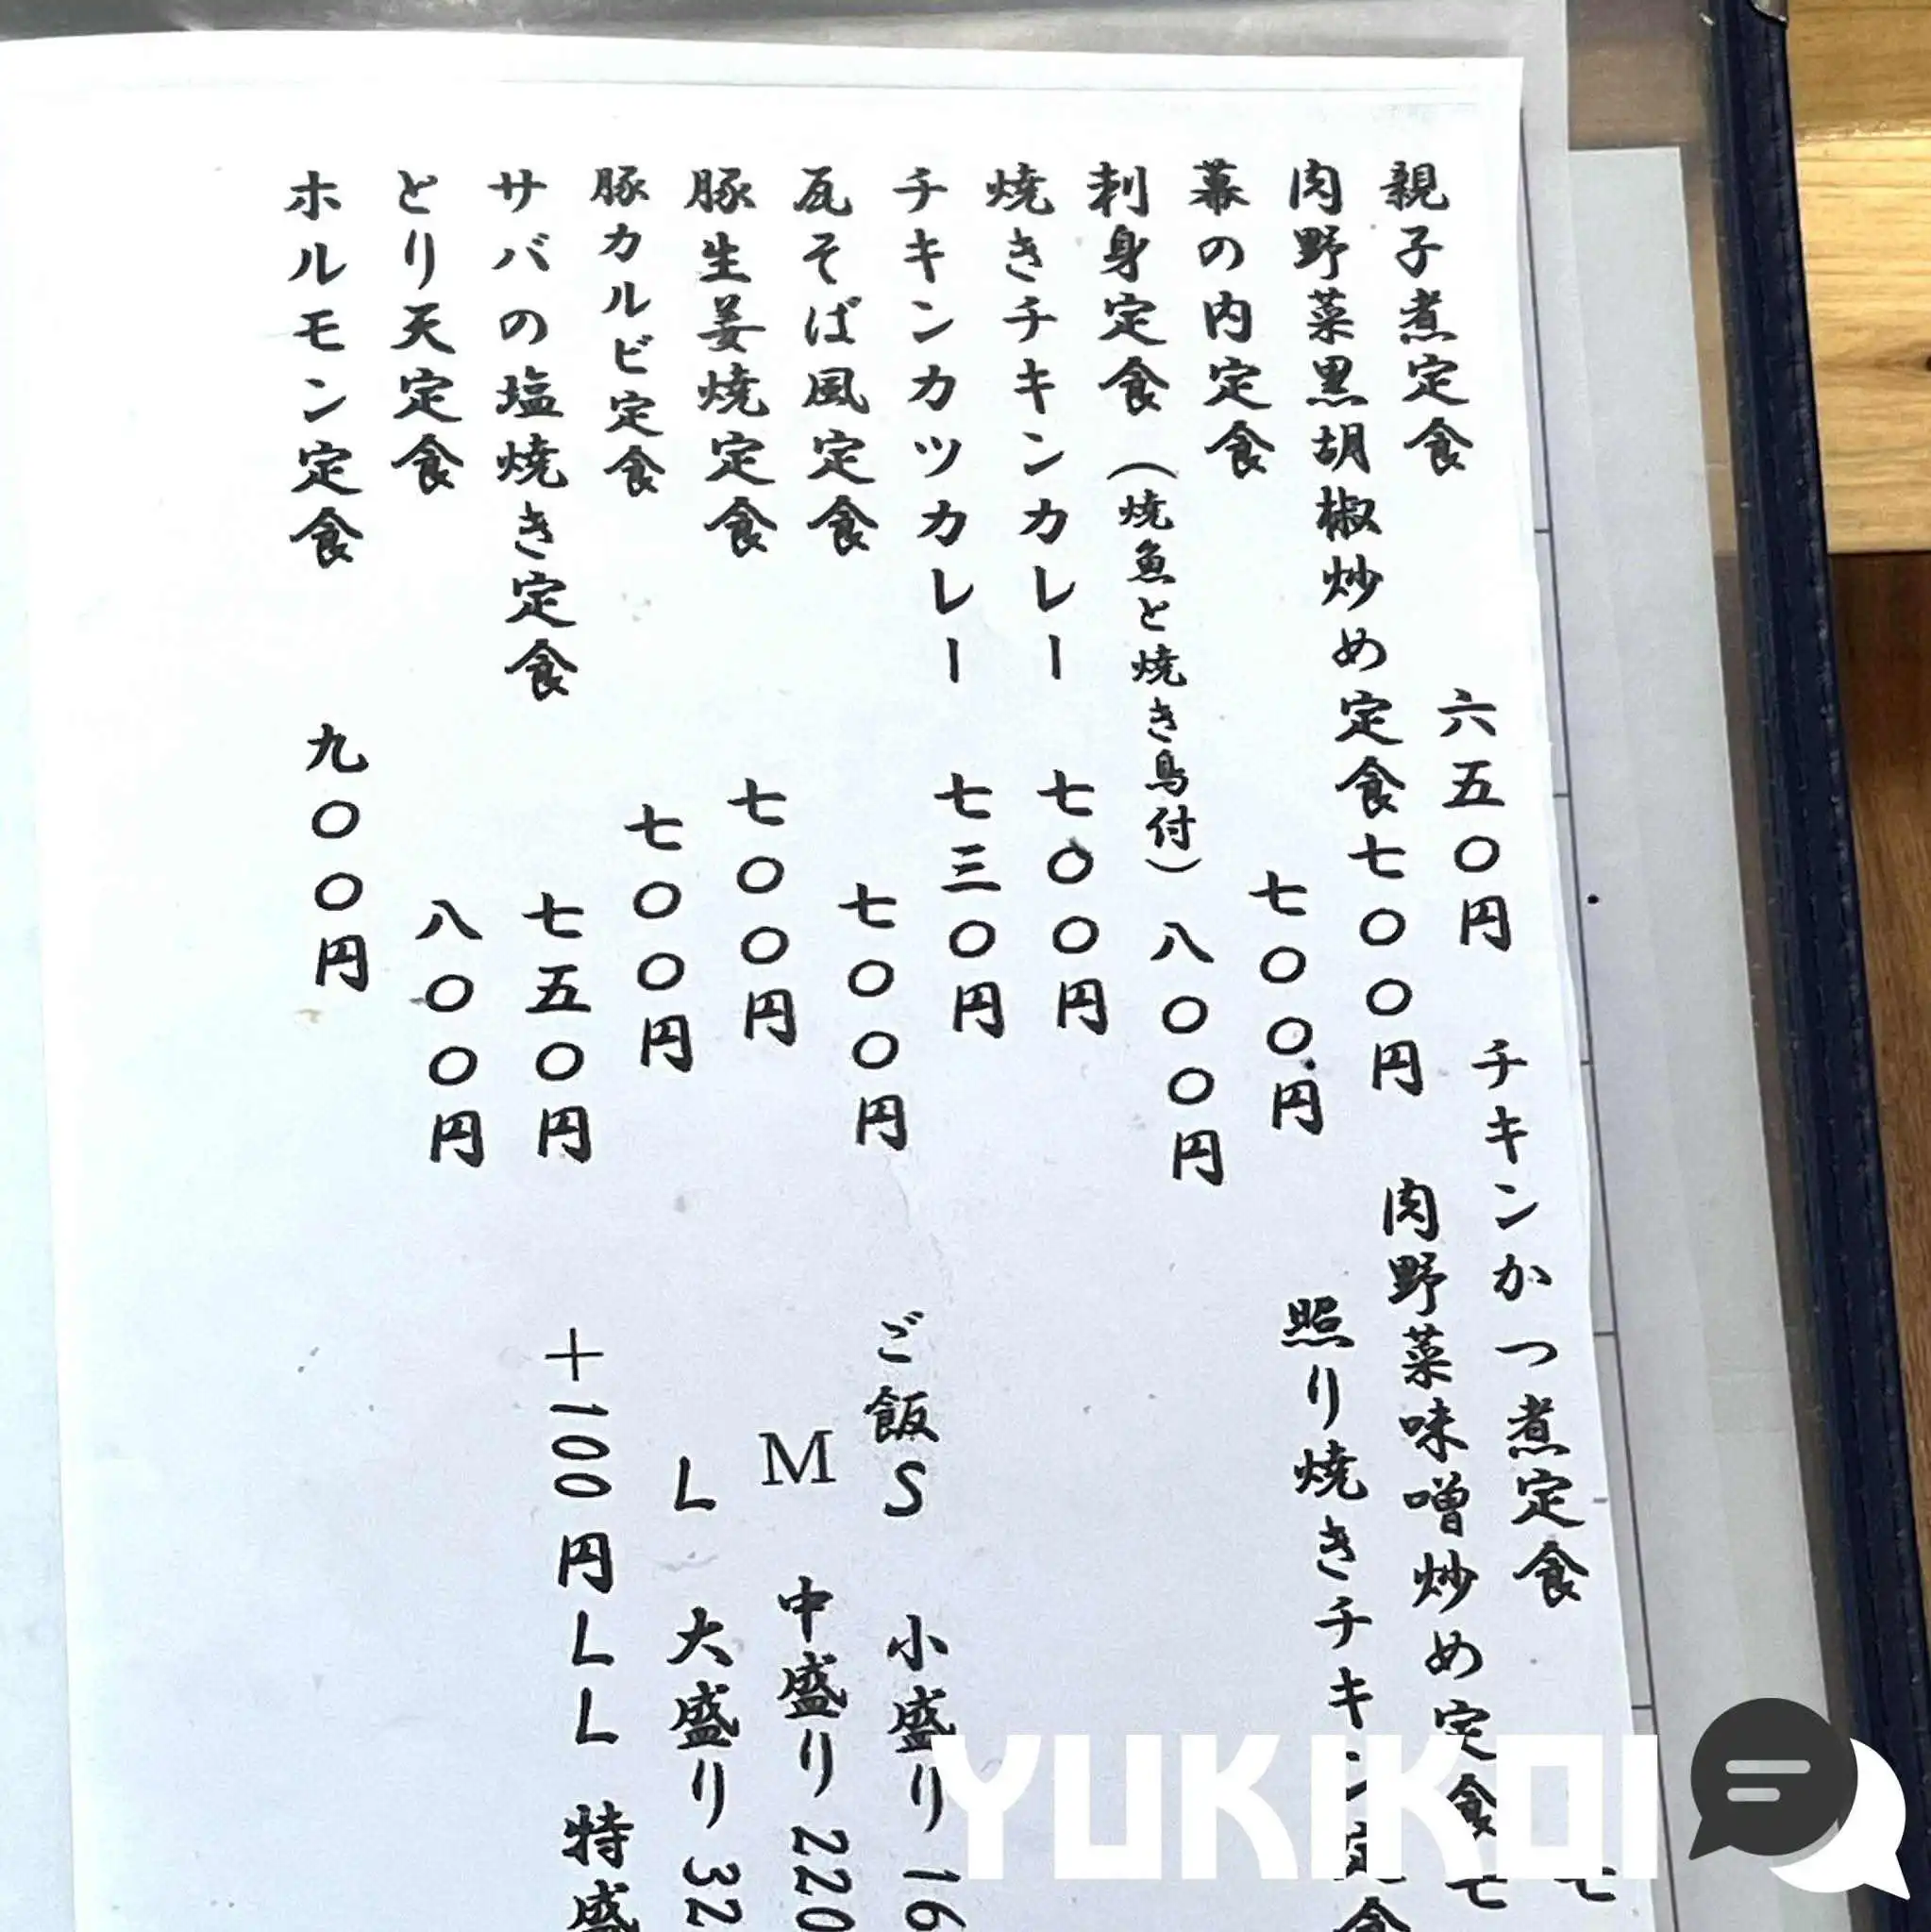 親子煮定食 六五〇円 チキンかつ煮定食 七
肉野菜黒胡椒炒め定食七〇〇円 肉野菜味噌炒め定食 七
幕の内定食 七〇〇円 照り焼きチキン定食
刺身定食（焼魚と焼き鳥付）八〇〇円
焼きチキンカレー 七〇〇円
チキンカツカレー 七三〇円
瓦そば風定食 七〇〇円 ご飯S 小盛り 16
豚生姜焼定食 七〇〇円 M 中盛り 220
豚カルビ定食 七〇〇円 L 大盛り 32
サバの塩焼き定食 七五〇円 +100円LL 特盛
とり天定食 八〇〇円
ホルモン定食 九〇〇円
YUKIKOI